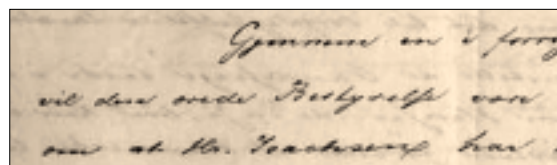 Gjennem en i forrg
vil den ærede Bestyrelse være
om at Hr. Isachsen har